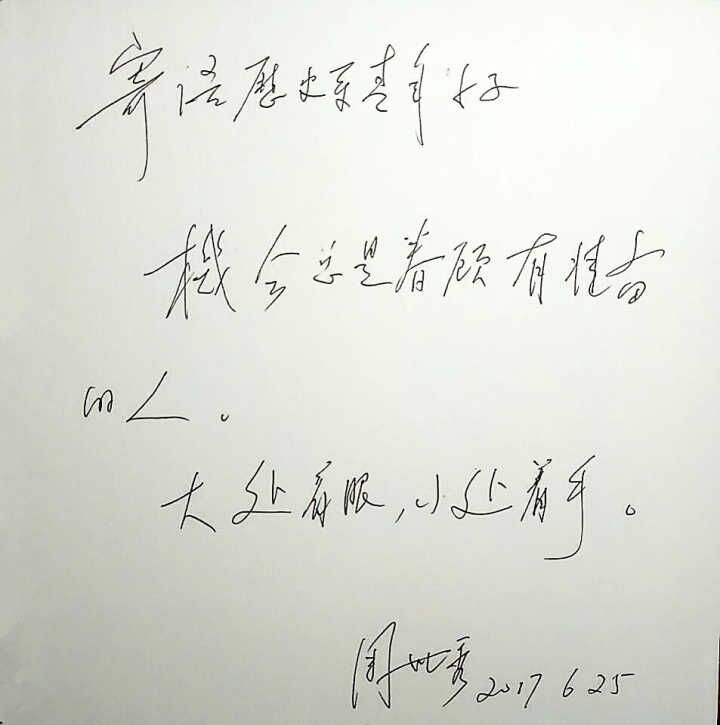 寄语歷史系青年好
機会总是眷顾有准备
的人。
大处着眼,小处着手。
周世秀 2017 6 25